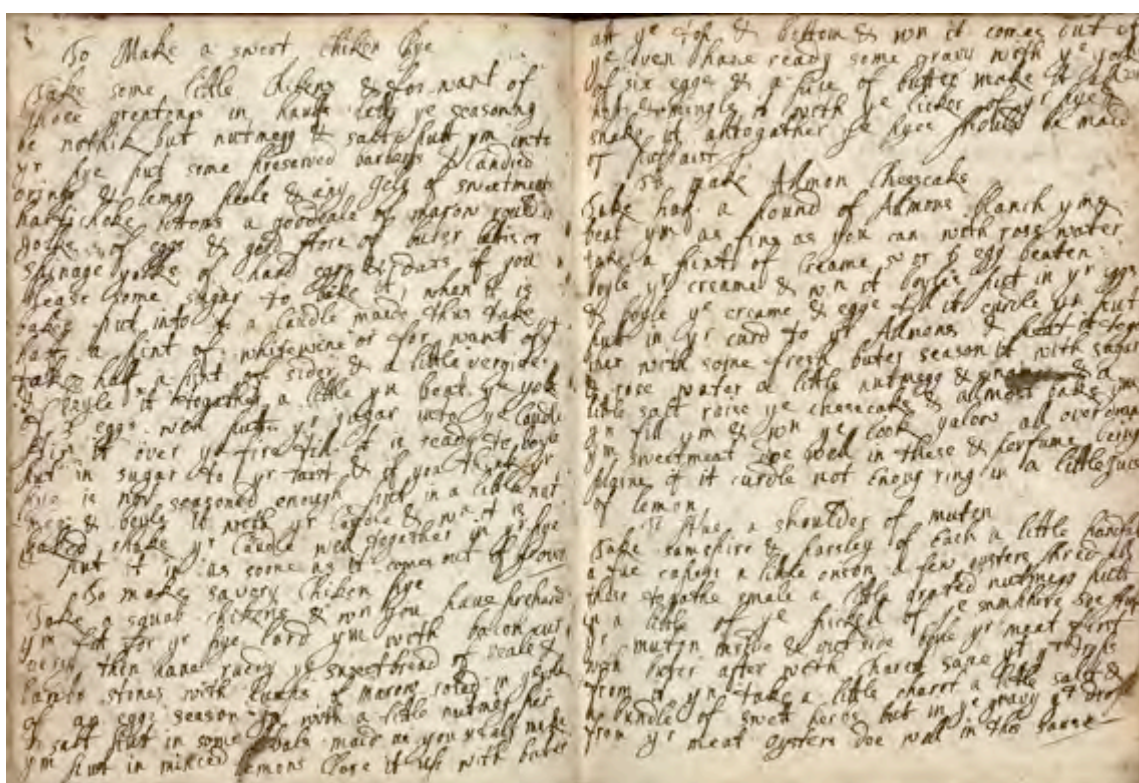 To Make a sweet Chiken Pye
Take some little Chikens & for want of
those greatings in hande lett ye seasoning
be nothik but nutmegg & salte putt ym into
yr pye put some preserved barbarys & Candied
oring & lemon peele & any sort of sweetment
hartichoke bottoms a gooddeale of marow rould in
yolke of eggs & good store of buter
spinage yolke of hard eggs & if you
please some sugar to bake it, when it is
baked put into it a Caudle made thus take
half a pint of whitewine or for want of yt
take half a pint of sider & a little vergide
boyle it together a little yn beat ye yolk
of 3 eggs wen puting yr sugar into ye Caudle
stir it over ye fire till it is ready to boyle
put in sugar to yr tast & if you think yr
pye is not seasoned enough put in a little nut
megg & boyle it with yr Caudle & wn it is
baked shake yr Caudle well together in yr pye
put it in as soone as it comes out of
To make savery Chicken Pye
Take a squab chickens & wn you have prepard
ym fit for yr pye lard ym with bacon cut
very thin have redy ye sugerbread of veale &
lambs stones with lumps of marow roled in yolke
of an egge season ym with a little nutmeg
& salt put in some bals made as you make
ym put in minced lemons Close it up with buter
att ye top & bottem & wn it comes out of
ye oven have ready some gravy with ye yolk
of six eggs & a pice of butter make it
mingle it with ye licker of yr pye &
shake it altogather ye pyes should be made
of
To make Almon Cheescake
Take half a pound of Almons Blanch ym &
beat ym as fine as you can with rose water
take a pinte of Creame or 6 egg beaten
boyle yr creame & wn it boyles put in yr eggs
& boyle ye creame & eggs till it curdle yn put
put in yr curd to yr Almons & beat it toge
ther with some fresh buter season it with sugar
& rose water a little nutmegg & & a
little salt raise ye cheesecake & allmost bake ym
yn fill ym & wn ye look yalow all over draw
ym sweetment doe well in these & perfume being
if it curdle not enough ring in a little juce
of lemon
To stue a shoulder of muten
Take samphire & parsley of Each a little handful
a fue capers a little onion a few oysters shred all
these togathe small a little grated nutmegg putt
in a little of ye pickell of ye samphire
yr muton inside & outside yr meat first
with buter after with Claret save yt yt drops
from it yn take a little claret a little salt &
a bundle of sweet herbs put in ye gravy yt drop
from yr meat oysters doe well in this sause